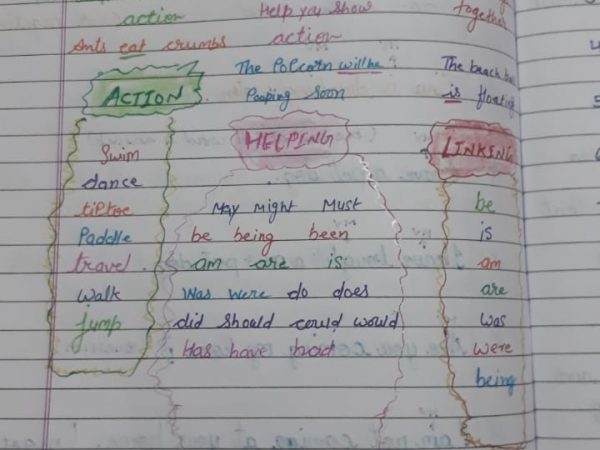 action
Ants eat crumbs
ACTION
Swim
dance
tiptoe
Paddle
travel
walk
Jump
Help you show
action
The Polcorn will be
Pooping soon
HELPING
May Might Must
be being been
am are is
Was Were do does
did should could would
Has have had
together
The beach
is floating
LINKING
be
is
am
are
was
were
being